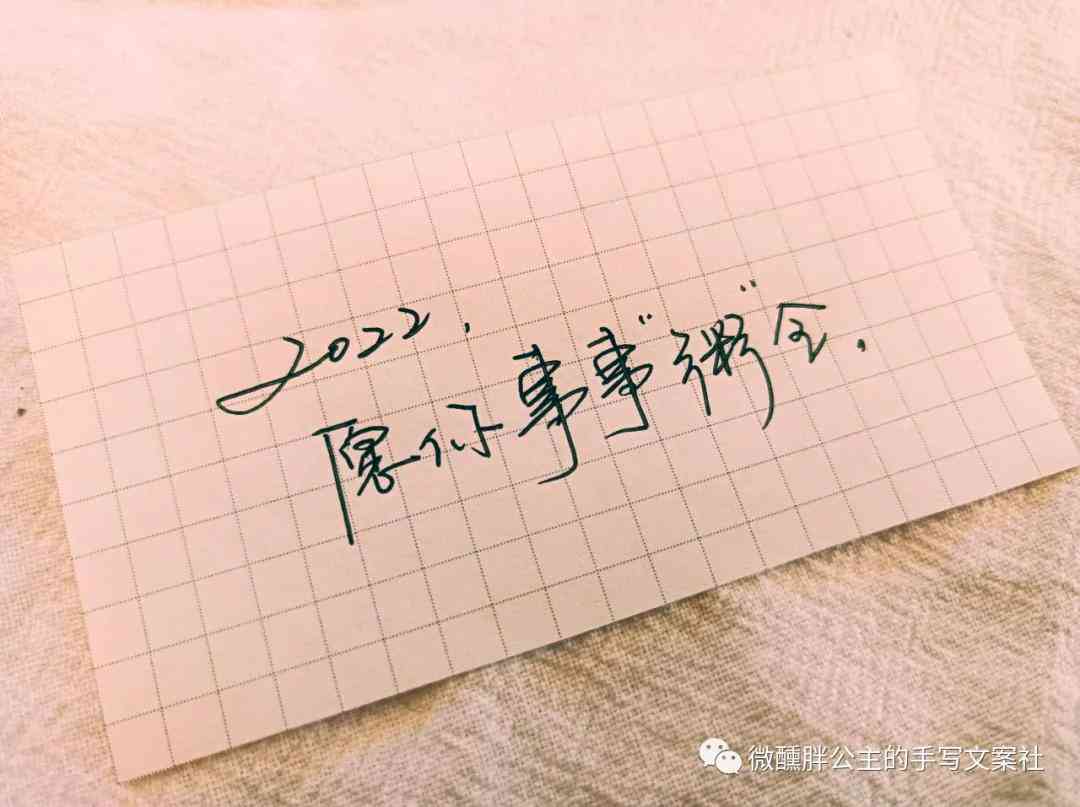 2022,
愿你事事“粥”全.
微醺胖公主的手写文案社